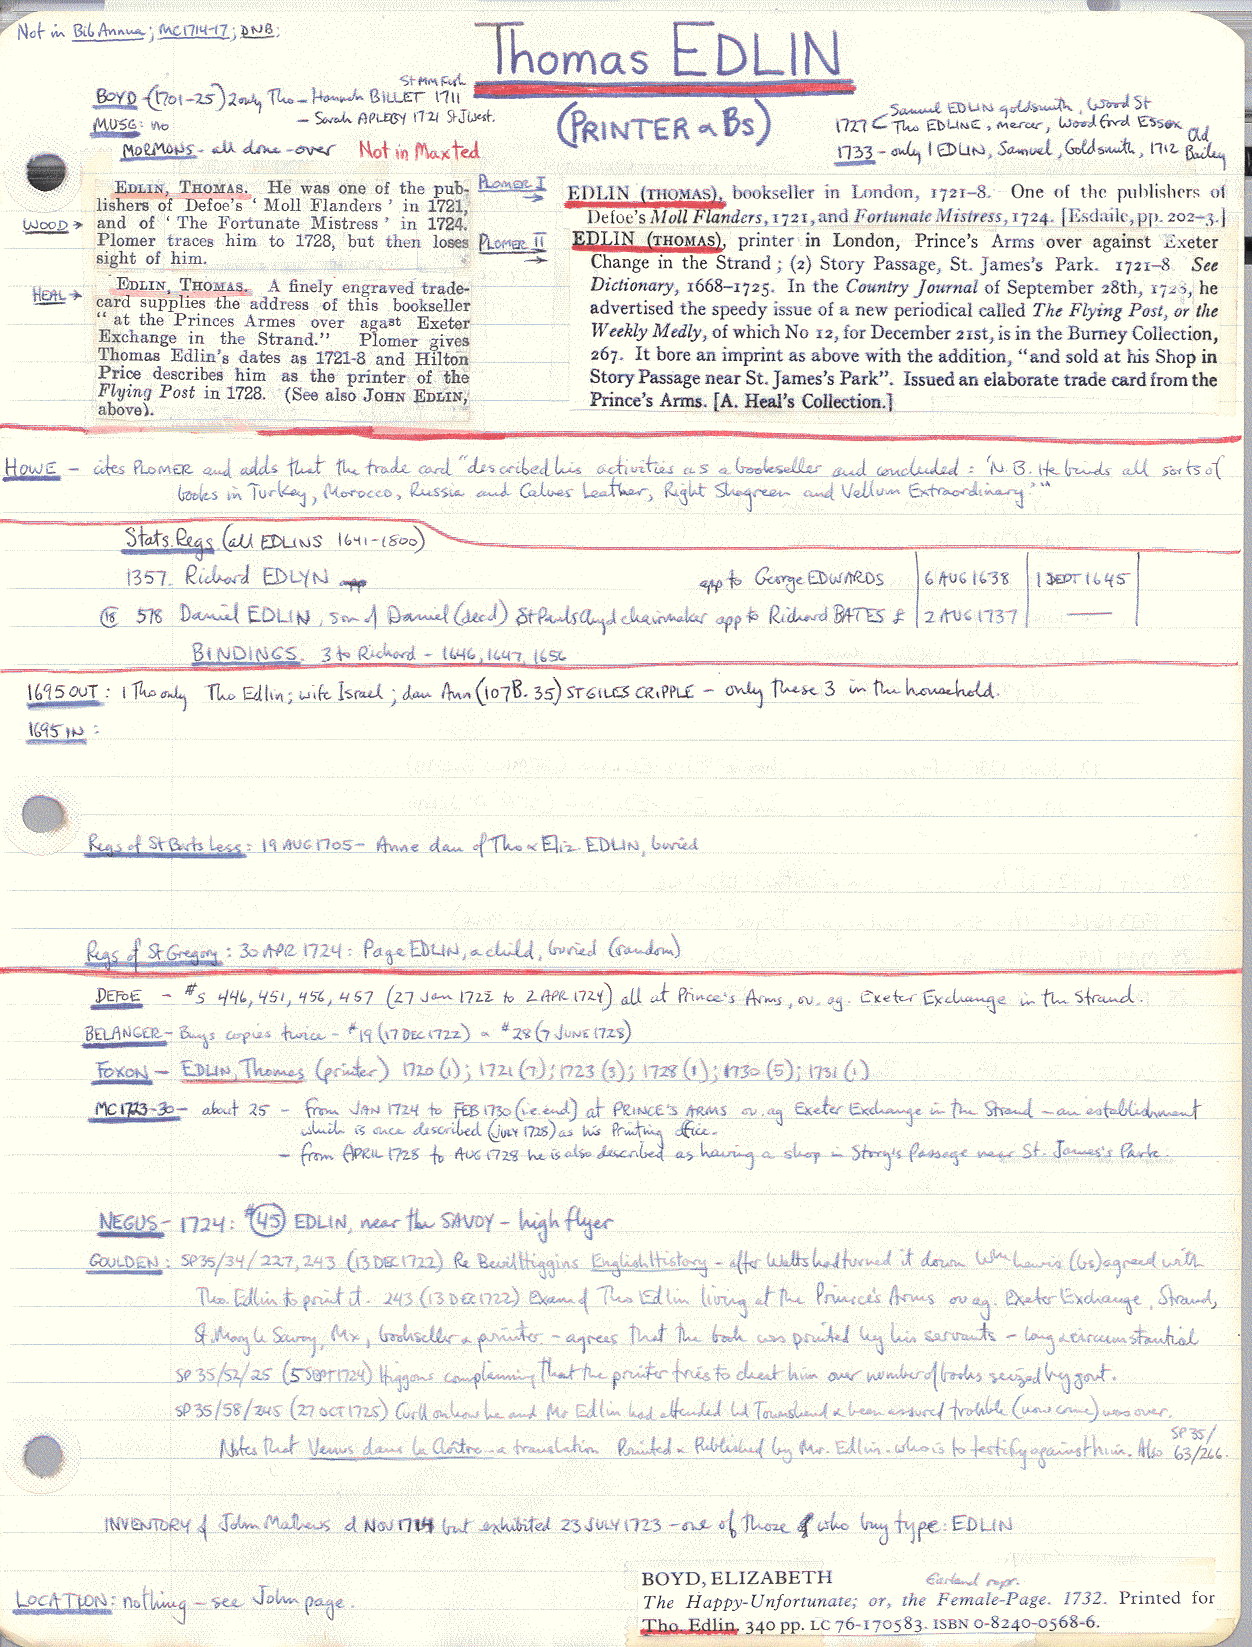 Not in Bib Annua; MC1714-17; DNB:
Thomas EDLIN
(PRINTER & Bs)
St Mm Fish
BOYD - (1701-25) 2 only Tho - Hannah BILLET 1711
- Sarah APLEBY 1721 St J West.
MUSG: no
MORMONS - all done - over Not in Maxted
Samuel EDLIN goldsmith, Wood St
1727 < Tho EDLINE, mercer, Woodford Essex
1733 - only 1 EDLIN, Samuel, Goldsmith, 1712 Old Bailey
WOOD →
EDLIN, THOMAS. He was one of the pub-
lishers of Defoe's ' Moll Flanders ' in 1721,
and of ' The Fortunate Mistress ' in 1724.
Plomer traces him to 1728, but then loses
sight of him.
HEAL →
EDLIN, THOMAS. A finely engraved trade-
card supplies the address of this bookseller
" at the Princes Armes over agast Exeter
Exchange in the Strand." Plomer gives
Thomas Edlin's dates as 1721-8 and Hilton
Price describes him as the printer of the
Flying Post in 1728. (See also JOHN EDLIN,
above).
PLOMER I →
EDLIN (THOMAS), bookseller in London, 1721-8. One of the publishers of
Defoe's Moll Flanders, 1721, and Fortunate Mistress, 1724. [Esdaile, pp. 202-3.]
PLOMER II →
EDLIN (THOMAS), printer in London, Prince's Arms over against Exeter
Change in the Strand ; (2) Story Passage, St. James's Park. 1721-8 See
Dictionary, 1668-1725. In the Country Journal of September 28th, 1728, he
advertised the speedy issue of a new periodical called The Flying Post, or the
Weekly Medly, of which No 12, for December 21st, is in the Burney Collection,
267. It bore an imprint as above with the addition, "and sold at his Shop in
Story Passage near St. James's Park". Issued an elaborate trade card from the
Prince's Arms. [A. Heal's Collection.]
HOWE - cites PLOMER and adds that the trade card "described his activities as a bookseller and concluded: 'N.B. He binds all sorts of
books in Turkey, Morocco, Russia and Calves Leather, Right Shagreen and Vellum Extraordinary.'"
Stats. Regs (all EDLINS 1641-1800)
1357 Richard EDLYN app to George EDWARDS 6 AUG 1638 1 SEPT 1645
18 578 Daniel EDLIN, son of Daniel (decd) St Pauls Chyd chairmaker app to Richard BATES £ 2 AUG 1737 —
BINDINGS. 3 to Richard - 1646, 1647, 1656
1695 OUT: 1 Tho only Tho Edlin; wife Israel; dau Ann (107B.35) ST GILES CRIPPLE - only these 3 in the household.
1695 IN:
Regs of St Barts Less: 19 AUG 1705 - Anne dau of Tho & Eliz EDLIN, buried
Regs of St Gregory: 30 APR 1724: Page EDLIN, a child, buried (random)
DEFOE - #s 446, 451, 456, 457 (27 Jan 1722 to 2 APR 1724) all at Prince's Arms, ov. ag. Exeter Exchange in the Strand.
BELANGER - Buys copies twice - #19 (17 DEC 1722) & #28 (7 JUNE 1728)
FOXON - EDLIN, Thomas (printer) 1720 (1); 1721 (7); 1723 (3); 1728 (1); 1730 (5); 1731 (1)
MC1723-30 - about 25 - from JAN 1724 to FEB 1730 (i.e. end) at PRINCE'S ARMS ov. ag Exeter Exchange in the Strand - an establishment
which is once described (JULY 1725) as his Printing office.
- from APRIL 1728 to AUG 1728 he is also described as having a shop in Story's Passage near St. James's Park.
NEGUS - 1724: #45 EDLIN, near the SAVOY - high flyer
GOULDEN: SP35/34/227, 243 (13 DEC 1722) Re Bevill Higgins English History - after Watts had turned it down Wm Lewis (bs) agreed with
Tho. Edlin to print it. 243 (13 DEC 1722) Exam of Tho Edlin living at the Prince's Arms ov ag. Exeter Exchange, Strand,
St Mary le Savoy, Mx, bookseller & printer - agrees that the book was printed by his servants - long & circumstantial
SP35/52/25 (5 SEPT 1724) Higgons complaining that the printer tries to cheat him over number of books seized by govt.
SP35/58/245 (27 OCT 1725) Curll on how he and Mr Edlin had attended Ld Townshend & been assured trouble (now come) was over.
Notes that Venus dans la Cloître - a translation Printed & Published by Mr. Edlin - who is to testify against him. Also SP35/
63/266.
INVENTORY of John Mathews d NOV 1714 but exhibited 23 JULY 1723 - one of those who buy type: EDLIN
LOCATION: nothing - see John page.
BOYD, ELIZABETH Garland repr.
The Happy-Unfortunate; or, the Female-Page. 1732. Printed for
Tho. Edlin. 340 pp. LC 76-170583. ISBN 0-8240-0568-6.